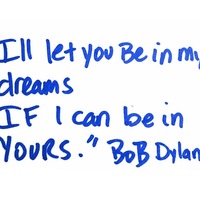 I'll let you Be in my
dreams
IF I can be in
YOURS." BoB Dylan